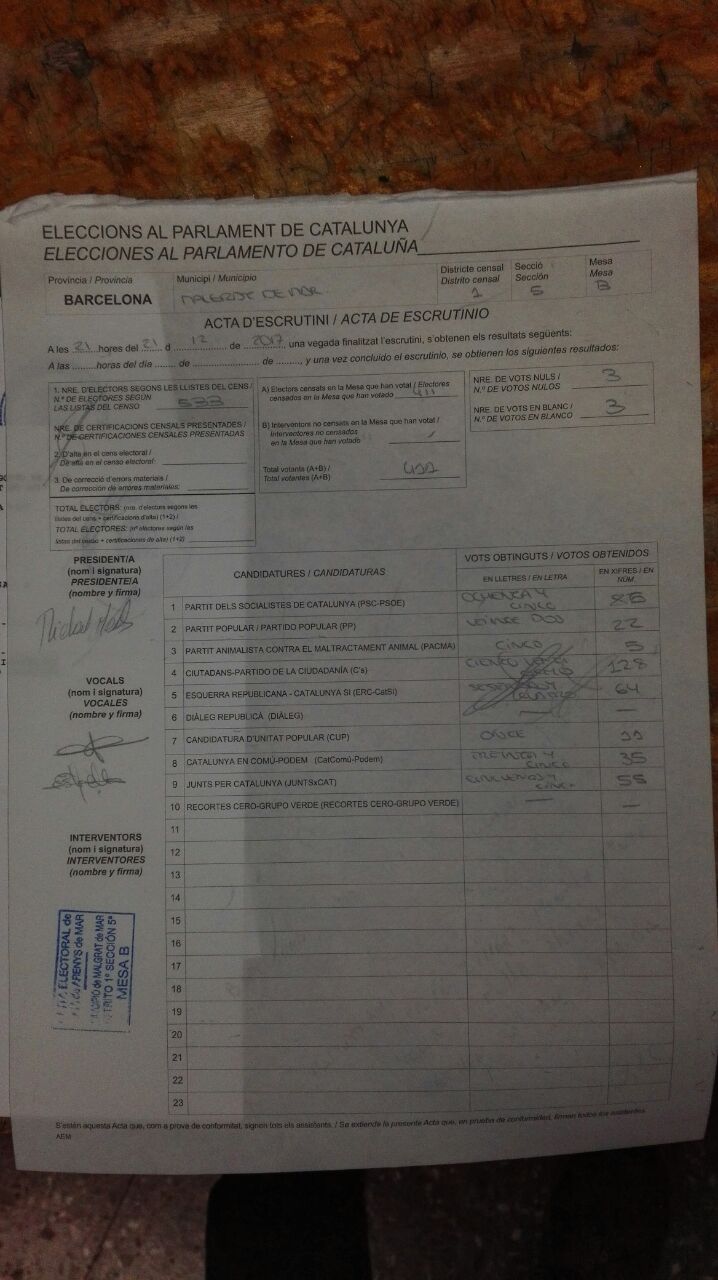 ELECCIONS AL PARLAMENT DE CATALUNYA
ELECCIONES AL PARLAMENTO DE CATALUÑA
Província / Provincia
BARCELONA
Municipi / Municipio
DE MAR
Districte censal
Distrito censal
1
Secció
Sección
5
Mesa
Mesa
B
ACTA D'ESCRUTINI / ACTA DE ESCRUTINIO
A les 21 hores del 21 d 12 de 2017 una vegada finalitzat l'escrutini, s'obtenen els resultats següents:
A las ........ horas del día ...... de .................... de ........, y una vez concluido el escrutinio, se obtienen los siguientes resultados:
1. NRE. D'ELECTORS SEGONS LES LLISTES DEL CENS /
N.º DE ELECTORES SEGÚN
LAS LISTAS DEL CENSO 533
NRE. DE CERTIFICACIONS CENSALS PRESENTADES /
N.º DE CERTIFICACIONES CENSALES PRESENTADAS
2. D'alta en el cens electoral /
De alta en el censo electoral:
3. De correcció d'errors materials /
De corrección de errores materiales:
TOTAL ELECTORS: (nre. d'electors segons les
llistes del cens + certificacions d'alta) (1+2) /
TOTAL ELECTORES: (nº electores según las
listas del censo + certificaciones de alta) (1+2)
A) Electors censats en la Mesa que han votat / Electores
censados en la Mesa que han votado 411
B) Interventors no censats en la Mesa que han votat /
Interventores no censados
en la Mesa que han votado
Total votants (A+B) /
Total votantes (A+B) 411
NRE. DE VOTS NULS /
N.º DE VOTOS NULOS 3
NRE. DE VOTS EN BLANC /
N.º DE VOTOS EN BLANCO 3
PRESIDENT/A
(nom i signatura)
PRESIDENTE/A
(nombre y firma)
VOCALS
(nom i signatura)
VOCALES
(nombre y firma)
INTERVENTORS
(nom i signatura)
INTERVENTORES
(nombre y firma)
CANDIDATURES / CANDIDATURAS
VOTS OBTINGUTS / VOTOS OBTENIDOS
EN LLETRES / EN LETRA
EN XIFRES / EN NÚM.
1 PARTIT DELS SOCIALISTES DE CATALUNYA (PSC-PSOE) OCHENTA Y CINCO 85
2 PARTIT POPULAR / PARTIDO POPULAR (PP) VEINTE DOS 22
3 PARTIT ANIMALISTA CONTRA EL MALTRACTAMENT ANIMAL (PACMA) CINCO 5
4 CIUTADANS-PARTIDO DE LA CIUDADANÍA (C's) CIENTO 128
5 ESQUERRA REPUBLICANA - CATALUNYA SI (ERC-CatSí) 64
6 DIÀLEG REPUBLICÀ (DIÀLEG) — —
7 CANDIDATURA D'UNITAT POPULAR (CUP) ONCE 11
8 CATALUNYA EN COMÚ-PODEM (CatComú-Podem) TREINTA Y CINCO 35
9 JUNTS PER CATALUNYA (JUNTSxCAT) CINCUENTA Y CINCO 55
10 RECORTES CERO-GRUPO VERDE (RECORTES CERO-GRUPO VERDE) — —
11
12
13
14
15
16
17
18
19
20
21
22
23
ELECTORAL de
ARENYS de MAR
MALGRAT de MAR
1º SECCIÓN 5ª
MESA B
S'estén aquesta Acta que, com a prova de conformitat, signen tots els assistents. / Se extiende la presente Acta que, en prueba de conformidad, firman todos los asistentes.
AEM